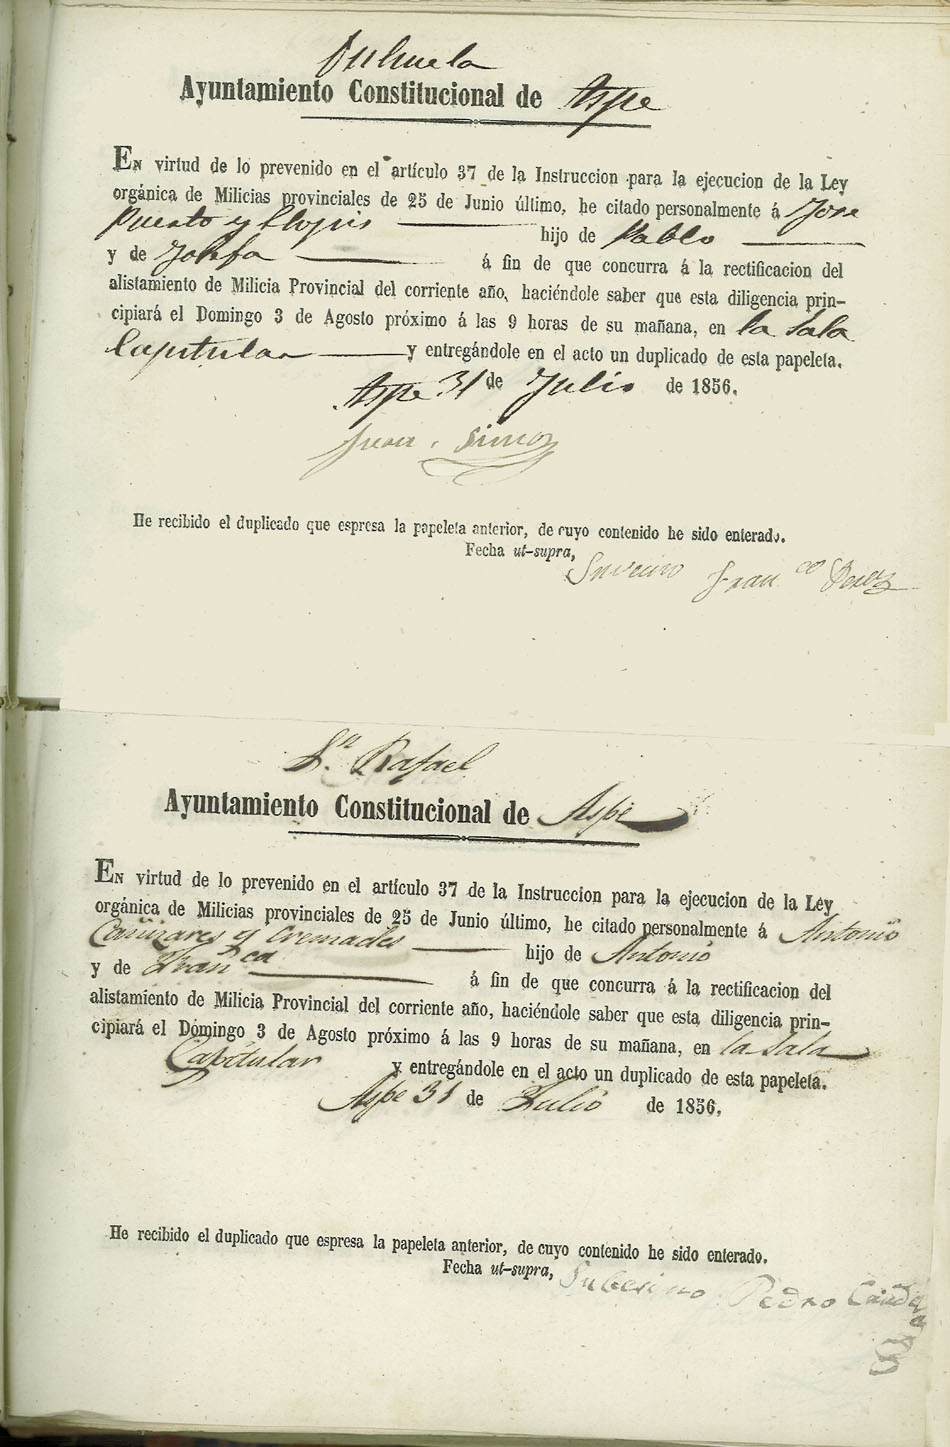 Orihuela
Ayuntamiento Constitucional de Aspe
En virtud de lo prevenido en el artículo 37 de la Instruccion para la ejecucion de la Ley
orgánica de Milicias provinciales de 25 de Junio último, he citado personalmente á Jose
Puerto y Llopis hijo de Pablo
y de Josefa á fin de que concurra á la rectificacion del
alistamiento de Milicia Provincial del corriente año, haciéndole saber que esta diligencia prin-
cipiará el Domingo 3 de Agosto próximo á las 9 horas de su mañana, en la Sala
Capitular y entregándole en el acto un duplicado de esta papeleta.
Aspe 31 de Julio de 1856.
Juan Simon
He recibido el duplicado que espresa la papeleta anterior, de cuyo contenido he sido enterado.
Fecha ut-supra,
Franco Perez
Sn. Rafael
Ayuntamiento Constitucional de Aspe
En virtud de lo prevenido en el artículo 37 de la Instruccion para la ejecucion de la Ley
orgánica de Milicias provinciales de 25 de Junio último, he citado personalmente á Antonio
Cañizares y Cremades hijo de Antonio
y de Franca á fin de que concurra á la rectificacion del
alistamiento de Milicia Provincial del corriente año, haciéndole saber que esta diligencia prin-
cipiará el Domingo 3 de Agosto próximo á las 9 horas de su mañana, en la Sala
Capitular y entregándole en el acto un duplicado de esta papeleta.
Aspe 31 de Julio de 1856.
He recibido el duplicado que espresa la papeleta anterior, de cuyo contenido he sido enterado.
Fecha ut-supra,
Pedro